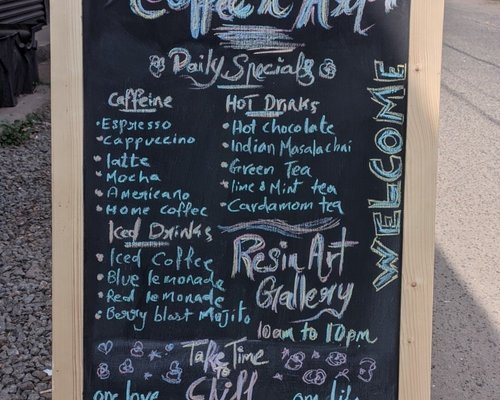 Coffee n Art
Daily Specials
Caffeine
Espresso
Cappuccino
latte
Mocha
Americano
Home coffee
Hot Drinks
Hot chocolate
Indian Masalachai
Green Tea
lime & Mint tea
Cardamom tea
WELCOME
Iced Drinks
Iced Coffee
Blue lemonade
Red lemonade
Berry blast Mojito
Resin Art
Gallery
10am to 10pm
Take Time
To
Chill
one love
one life